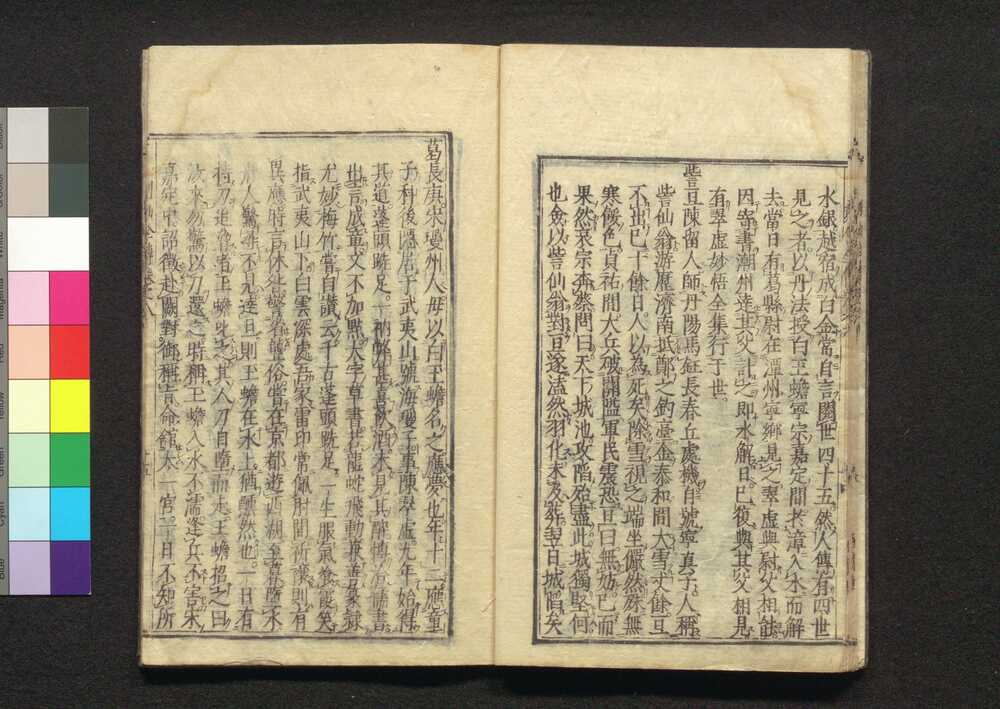 水銀越宿成白金常自言閱世四十五然人傳有四世
見之者以丹法授白玉蟾寧宗嘉定間於漳入水而解
去當日有葛縣尉在潭州寧鄉見之翠虛與尉父相
因寄書潮州達其父計之即水解日已復與其父相見
有翠虛妙悟全集行于世
訾亘陳留人師丹陽馬鈺長春丘處機自號寧真子人稱
訾仙翁游歷濟南抵鄭之釣臺金泰和間大雪丈餘亘
不出已十餘日人以為死矣除雪視之端坐儼然殊無
寒餒色貞祐間大兵破關監軍民震恐亘曰無妨已而
果然哀宗奔蔡問曰天下城池攻陷殆盡此城獨堅何
也僉以訾仙翁對亘遂溘然羽化未及葬翌日城陷矣
葛長庚宋瓊州人母以白玉蟾名之應夢也年十二應童
子科後隱居于武夷山號海瓊子事陳翠虛九年始得
其道蓬頭跣足一衲弊甚喜飲酒未見其醉博洽儒書
出言成章文不加點大字草書若龍蛇飛動兼善篆隸
尤妙梅竹嘗自讚云千古蓬頭跣足一生服氣餐霞笑
指武夷山下白雲深處吾家雷印常佩肘間祈禳則有
異應時言休咎警省聾俗嘗在京都遊西湖至暮墮水
舟人驚尋不見達旦則玉蟾在水上猶醺然也一日有
持刀追脅者玉蟾叱之其人刀自墮而走玉蟾招之曰
汝來勿驚以刀還之時稱玉蟾入水不濡逢兵不害宋
嘉定中詔徵赴闕對御稱旨命館太一宮一日不知所